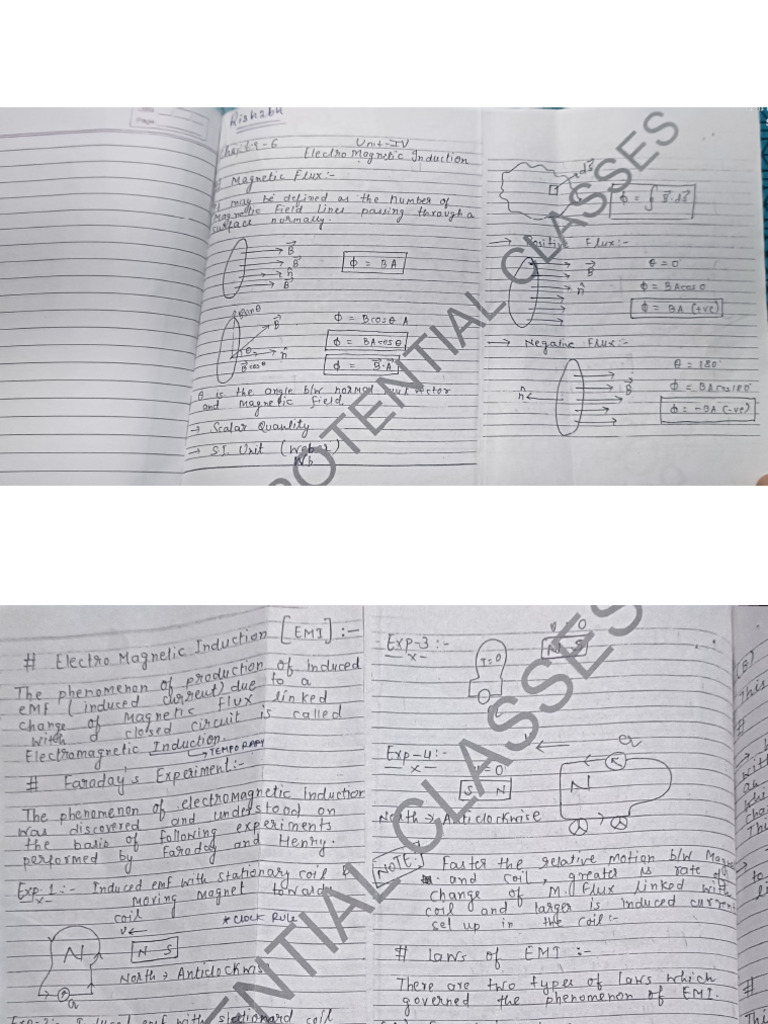 Page
Rishabh
Unit-IV
Electro Magnetic Induction
Magnetic Flux:-
may be defined as the number of
Magnetic Field lines passing through a
surface normally.
B⃗
B⃗
n̂
B⃗
ϕ = BA
B⃗
θ
n̂
B⃗ cosθ
ϕ = Bcosθ A
ϕ = BAcosθ
ϕ = B⃗.A⃗
θ is the angle b/w normal vector
and Magnetic field.
→ Scalar Quantity
→ S.I. Unit (Weber)
Wb
ds⃗
ϕ = ∫ B⃗.ds⃗
→ Positive Flux:-
B⃗
n̂
θ = 0
ϕ = BAcos0
ϕ = BA (+ve)
→ Negative Flux:-
n̂
B⃗
θ = 180°
ϕ = BAcos180°
ϕ = -BA (-ve)
POTENTIAL CLASSES
# Electro Magnetic Induction [EMI] :-
The phenomenon of production of induced
emf (induced current) due to a
change of Magnetic flux linked
with a closed circuit is called
Electromagnetic Induction.
TEMPORARY
# Faraday's Experiment:-
The phenomenon of electromagnetic induction
was discovered and understood on
the basis of following experiments
performed by Faraday and Henry.
Exp-1:- Induced emf with stationary coil &
moving Magnet towards
coil
* CLOCK RULE
v
N
N S
North → Anticlockwise
G
emf with stationary coil
Exp-3:-
I=0
v
0
N S
Exp-4:-
=0
S N
v
N
North → Anticlockwise
NOTE: Faster the relative motion b/w
and coil, greater is rate of
change of M.flux linked with
coil and larger is induced
set up in the coil:-
# Laws of EMI :-
There are two types of laws which
governed the phenomenon of EMI.
(B)
This
#
POTENTIAL CLASSES